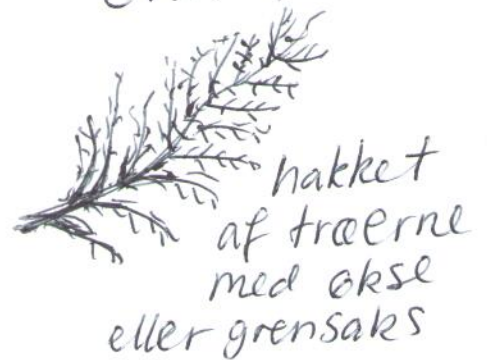 hakket
af træerne
med økse
eller grensaks